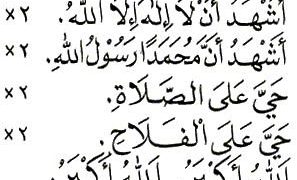 أَشْهَدُ أَنْ لَا إِلٰهَ إِلَّا اللهُ. ×٢
أَشْهَدُ أَنَّ مُحَمَدًا رَسُوْلُ اللهِ. ×٢
حَيَّ عَلَى الصَّلَاةِ. ×٢
حَيَّ عَلَى الْفَلَاحِ. ×٢
اَللهُ أَكْبَرُ اَللهُ أَكْبَرُ